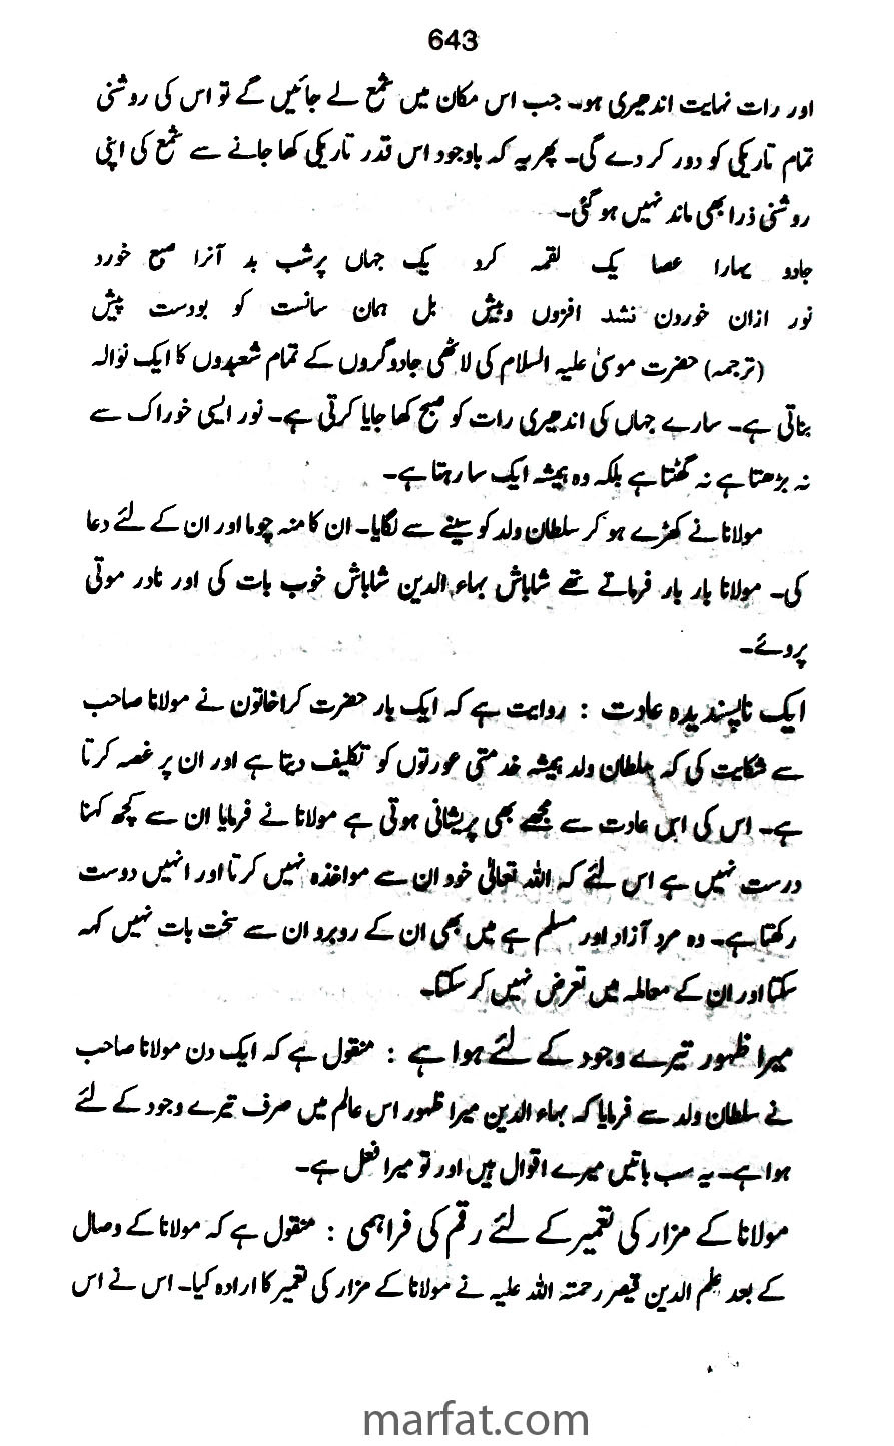 643
اور رات نہایت اندھیری ہو۔ جب اس مکان میں شمع لے جائیں گے تو اس کی روشنی
تمام تاریکی کو دور کر دے گی۔ پھر یہ کہ باوجود اس قدر تاریکی کھا جانے سے شمع کی اپنی
روشنی ذرا بھی ماند نہیں ہو گئی۔
جادو یہارا عصا یک لقمہ کرد یک جہاں پرشب بد آنرا صبح خورد
نور ازان خوردن نشد افزوں وبیش بل ہمان سانست کو بودست پیش
(ترجمہ) حضرت موسیٰ علیہ السلام کی لاٹھی جادوگروں کے تمام شعبدوں کا ایک نوالہ
بناتی ہے۔ سارے جہاں کی اندھیری رات کو صبح کھا جایا کرتی ہے۔ نور ایسی خوراک سے
نہ بڑھتا ہے نہ گھٹتا ہے بلکہ وہ ہمیشہ ایک سا رہتا ہے۔
مولانا نے کھڑے ہو کر سلطان ولد کو سینے سے لگایا۔ ان کا منہ چوما اور ان کے لئے دعا
کی۔ مولانا بار بار فرماتے تھے شاباش بہاء الدین شاباش خوب بات کی اور نادر موتی
پروئے۔
ایک ناپسندیدہ عادت : روایت ہے کہ ایک بار حضرت کراخاتون نے مولانا صاحب
سے شکایت کی کہ سلطان ولد ہمیشہ خدمتی عورتوں کو تکلیف دیتا ہے اور ان پر غصہ کرتا
ہے۔ اس کی اس عادت سے مجھے بھی پریشانی ہوتی ہے مولانا نے فرمایا ان سے کچھ کہنا
درست نہیں ہے اس لئے کہ اللہ تعالیٰ خود ان سے مواخذہ نہیں کرتا اور انہیں دوست
رکھتا ہے۔ وہ مرد آزاد اور مسلم ہے میں بھی ان کے روبرو ان سے سخت بات نہیں کہہ
سکتا اور ان کے معاملہ میں تعرض نہیں کر سکتا۔
میرا ظہور تیرے وجود کے لئے ہوا ہے : منقول ہے کہ ایک دن مولانا صاحب
نے سلطان ولد سے فرمایا کہ بہاء الدین میرا ظہور اس عالم میں صرف تیرے وجود کے لئے
ہوا ہے۔ یہ سب باتیں میرے اقوال ہیں اور تو میرا فعل ہے۔
مولانا کے مزار کی تعمیر کے لئے رقم کی فراہمی : منقول ہے کہ مولانا کے وصال
کے بعد علم الدین قیصر رحمتہ اللہ علیہ نے مولانا کے مزار کی تعمیر کا ارادہ کیا۔ اس نے اس
marfat.com